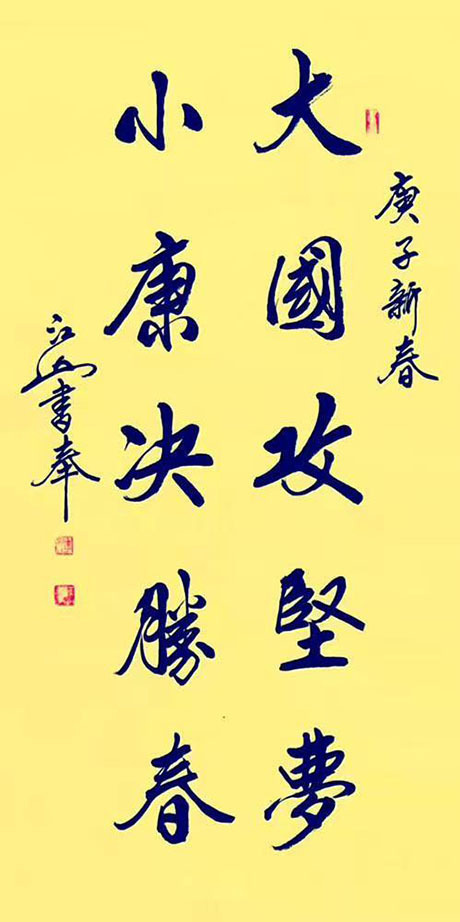 庚子新春
大國攻堅夢
小康决勝春
江山書奉